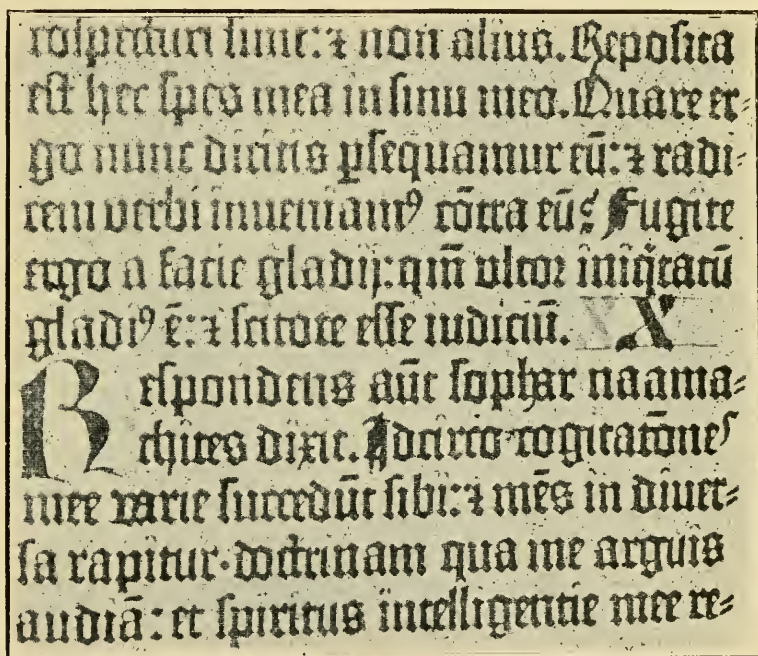 rospecturi sunt: ⁊ non alius. Reposita
est hec spes mea in sinu meo. Quare er⸗
go nunc dicitis ꝑsequamur eū: ⁊ radi⸗
cem verbi inueniamꝰ cōtra eū? Fugite
ergo a facie gladij: qm̄ vltor iniq̄tatū
gladiꝰ ē: ⁊ scitote esse iudiciū. XX
Respondens aūt sophar naama⸗
thites dixit. Idcirco cogitatōnes
mee varie succedūt sibi: ⁊ mēs in diuer⸗
sa rapitur. doctrinam qua me arguis
audiā: et spiritus intelligentie mee re⸗